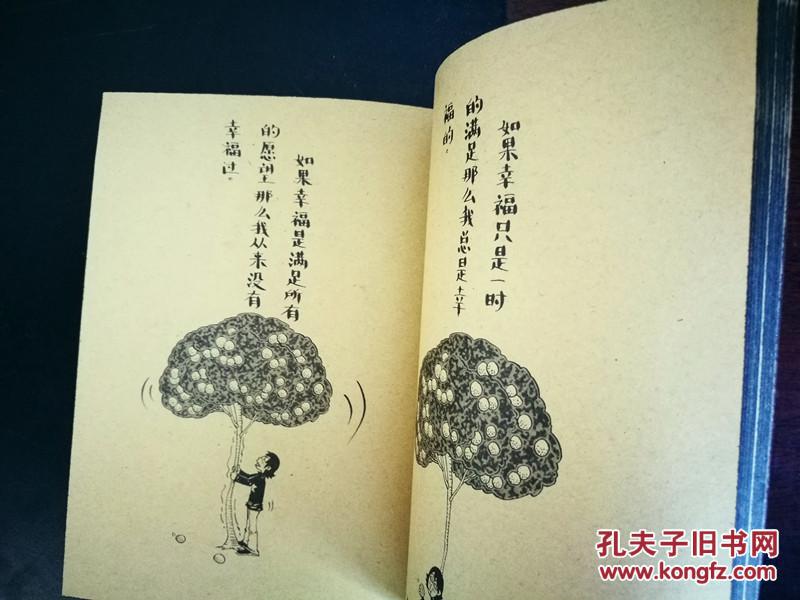 如果幸福是满足所有
的愿望那么我从来没有
幸福过。
如果幸福只是一时
的满足那么我总是幸
福的。
孔夫子旧书网
www.kongfz.com